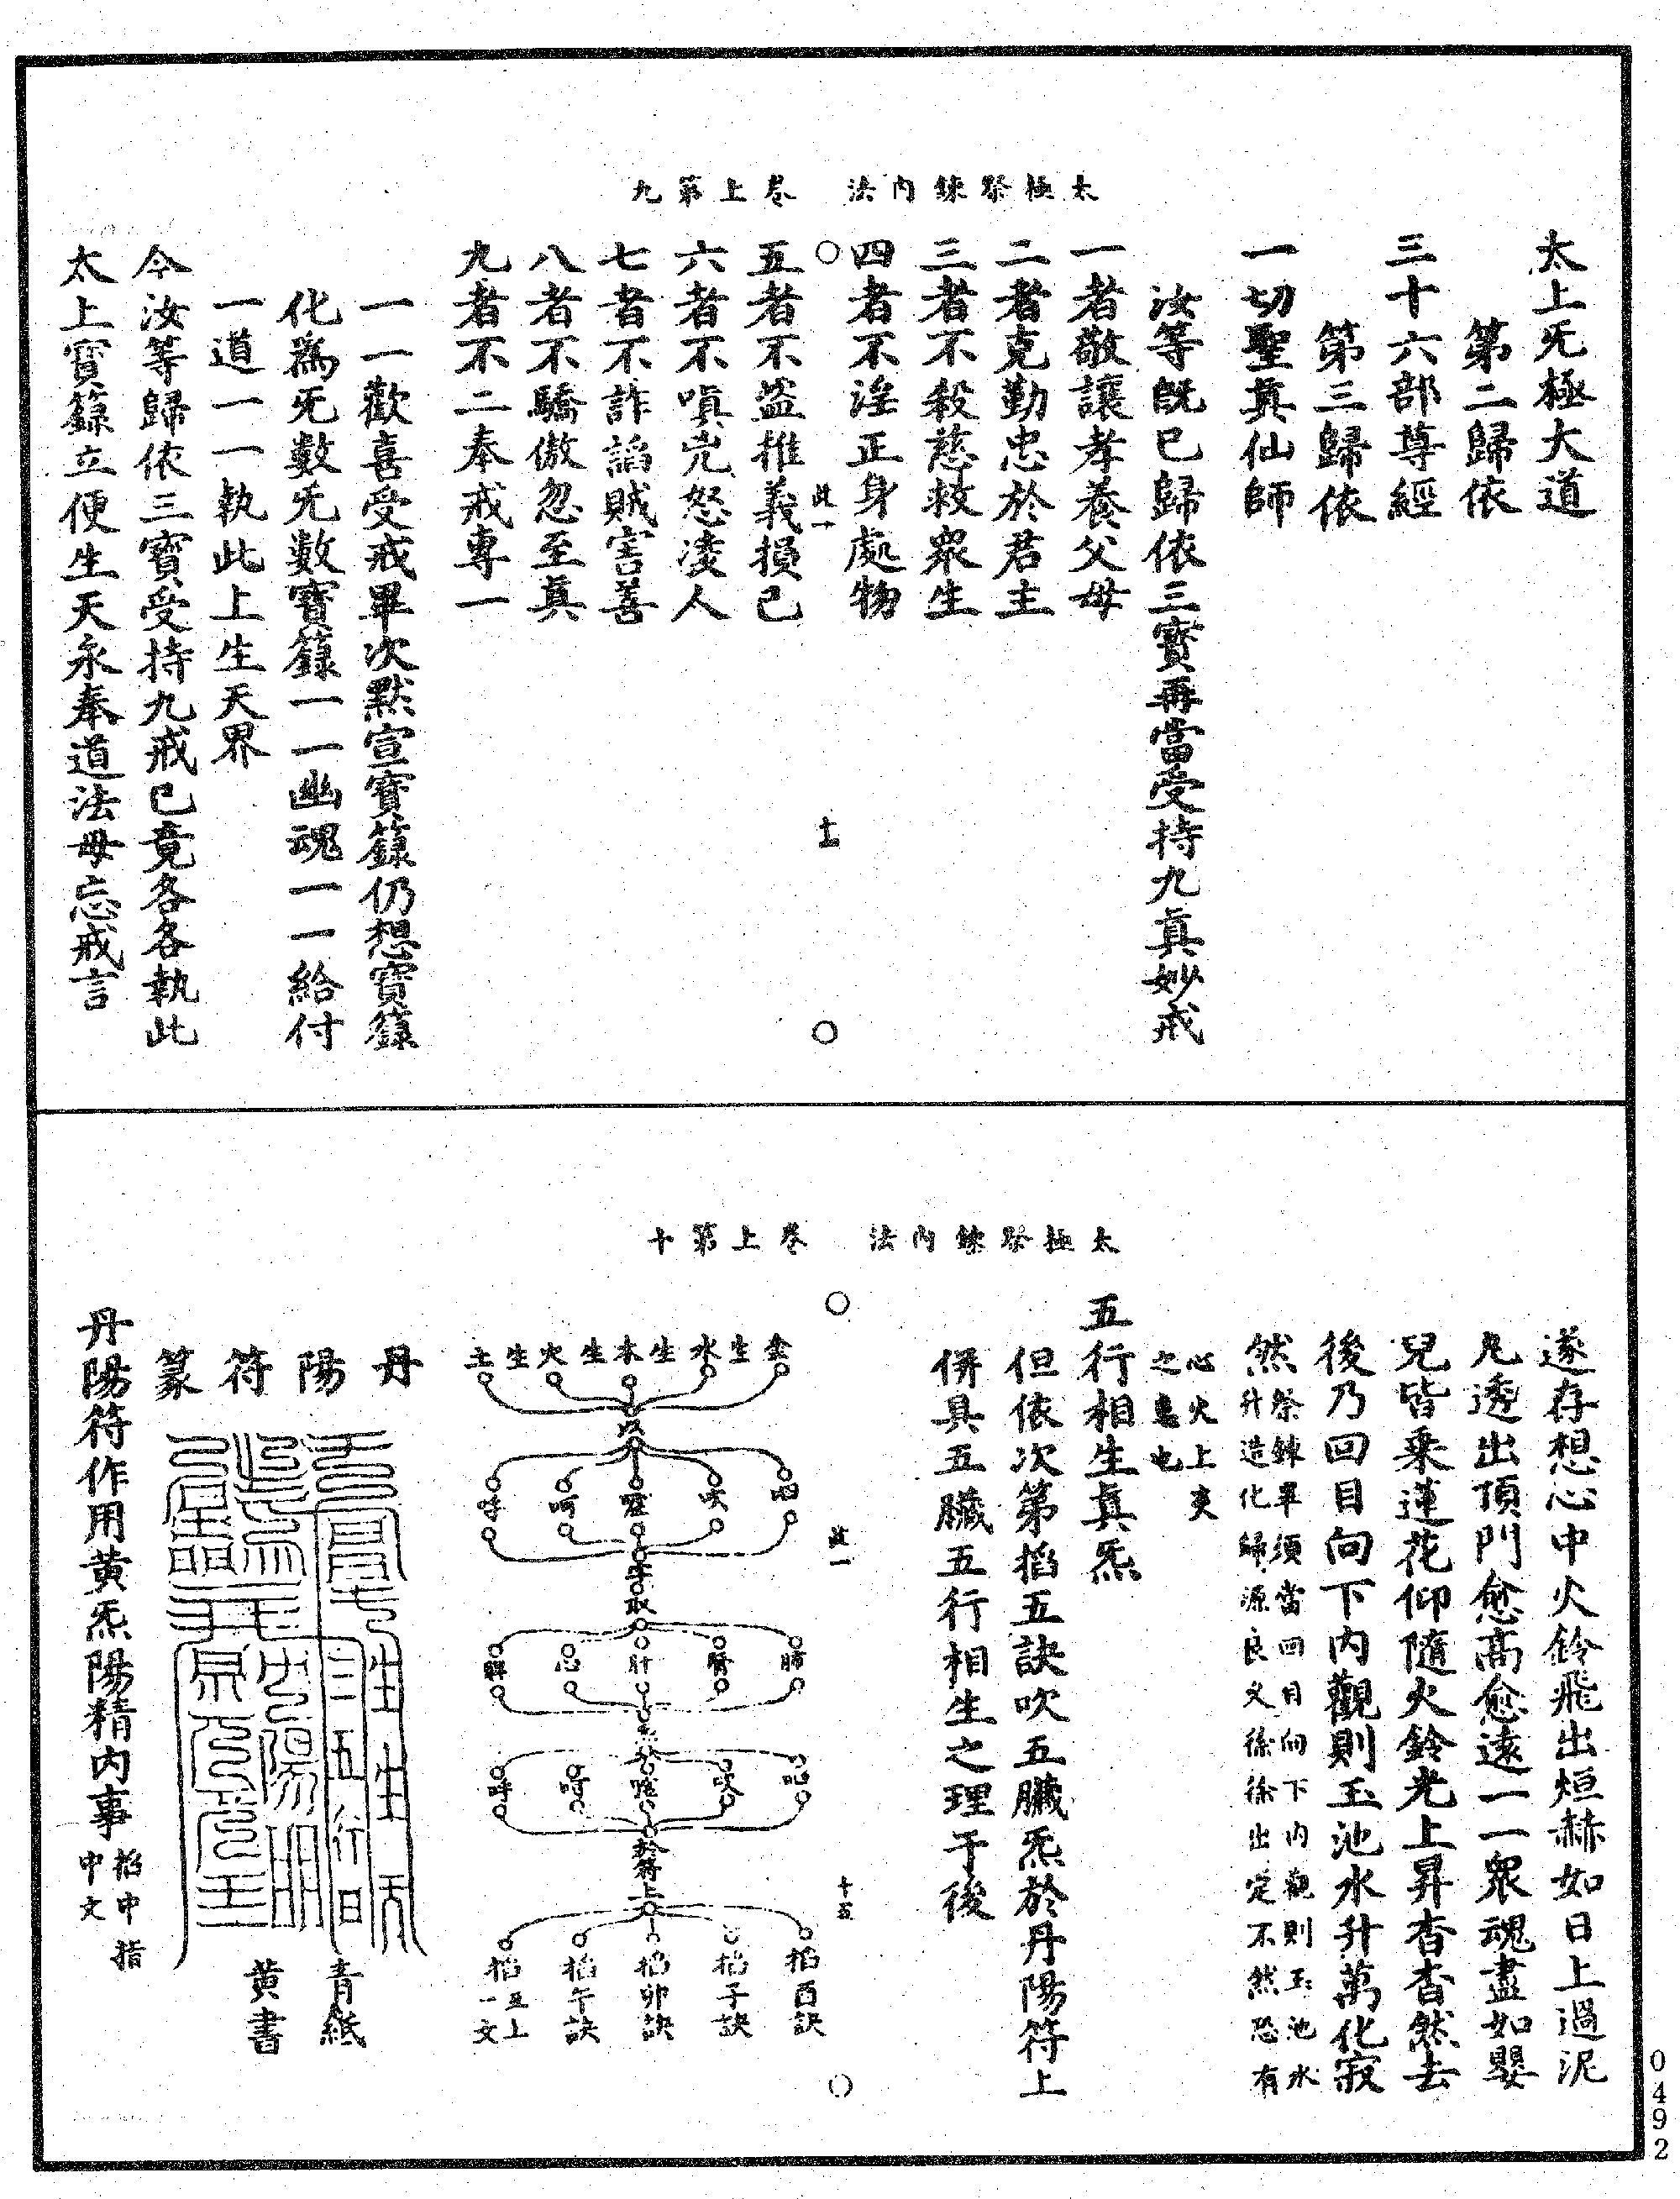 太極祭鍊內法　卷上第九
太上旡極大道
第二歸依
三十六部尊經
第三歸依
一切聖真仙師
汝等旣已歸依三寶再當受持九真妙戒
一者敬讓孝養父母
二者克勤忠於君主
三者不殺慈救眾生
四者不淫正身處物
五者不盗推義損己
六者不嗔兇怒凌人
七者不詐謟賊害善
八者不驕傲忽至真
九者不二奉戒專一
一一歡喜受戒畢次默宣寶籙仍想寶籙
化爲旡數旡數寶籙一一幽魂一一給付
一道一一執此上生天界
今汝等歸依三寶受持九戒已竟各各執此
太上寶籙立便生天永奉道法毋忘戒言
太極祭鍊內法　卷上第十
遂存想心中火鈴飛出烜赫如日上過泥
丸透出頂門愈高愈遠一一眾魂盡如嬰
兒皆乘蓮花仰隨火鈴光上昇杳杳然去
後乃回目向下內觀則玉池水升萬化寂
然祭鍊畢須當回目向下內觀則玉池水
升造化歸源良乆徐徐出定不然恐有
心火上炎
之患也
五行相生真炁
但依次第掐五訣吹五臟炁於丹陽符上
併具五臟五行相生之理于後
金生水生木生火生土
以
呬 吹 噓 呵 呼
字取
肺 腎 肝 心 脾
炁於
呬 吹 噓 呵 呼
於符上
掐酉訣
掐子訣
掐卯訣
掐午訣
掐五上
一文
丹陽符篆
青紙
黄書
丹陽符作用黄炁陽精內事掐中指
中文
0492